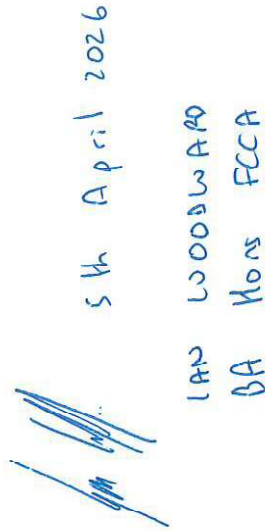 5th April 2026
IAN WOODWARD
BA Hons FCCA